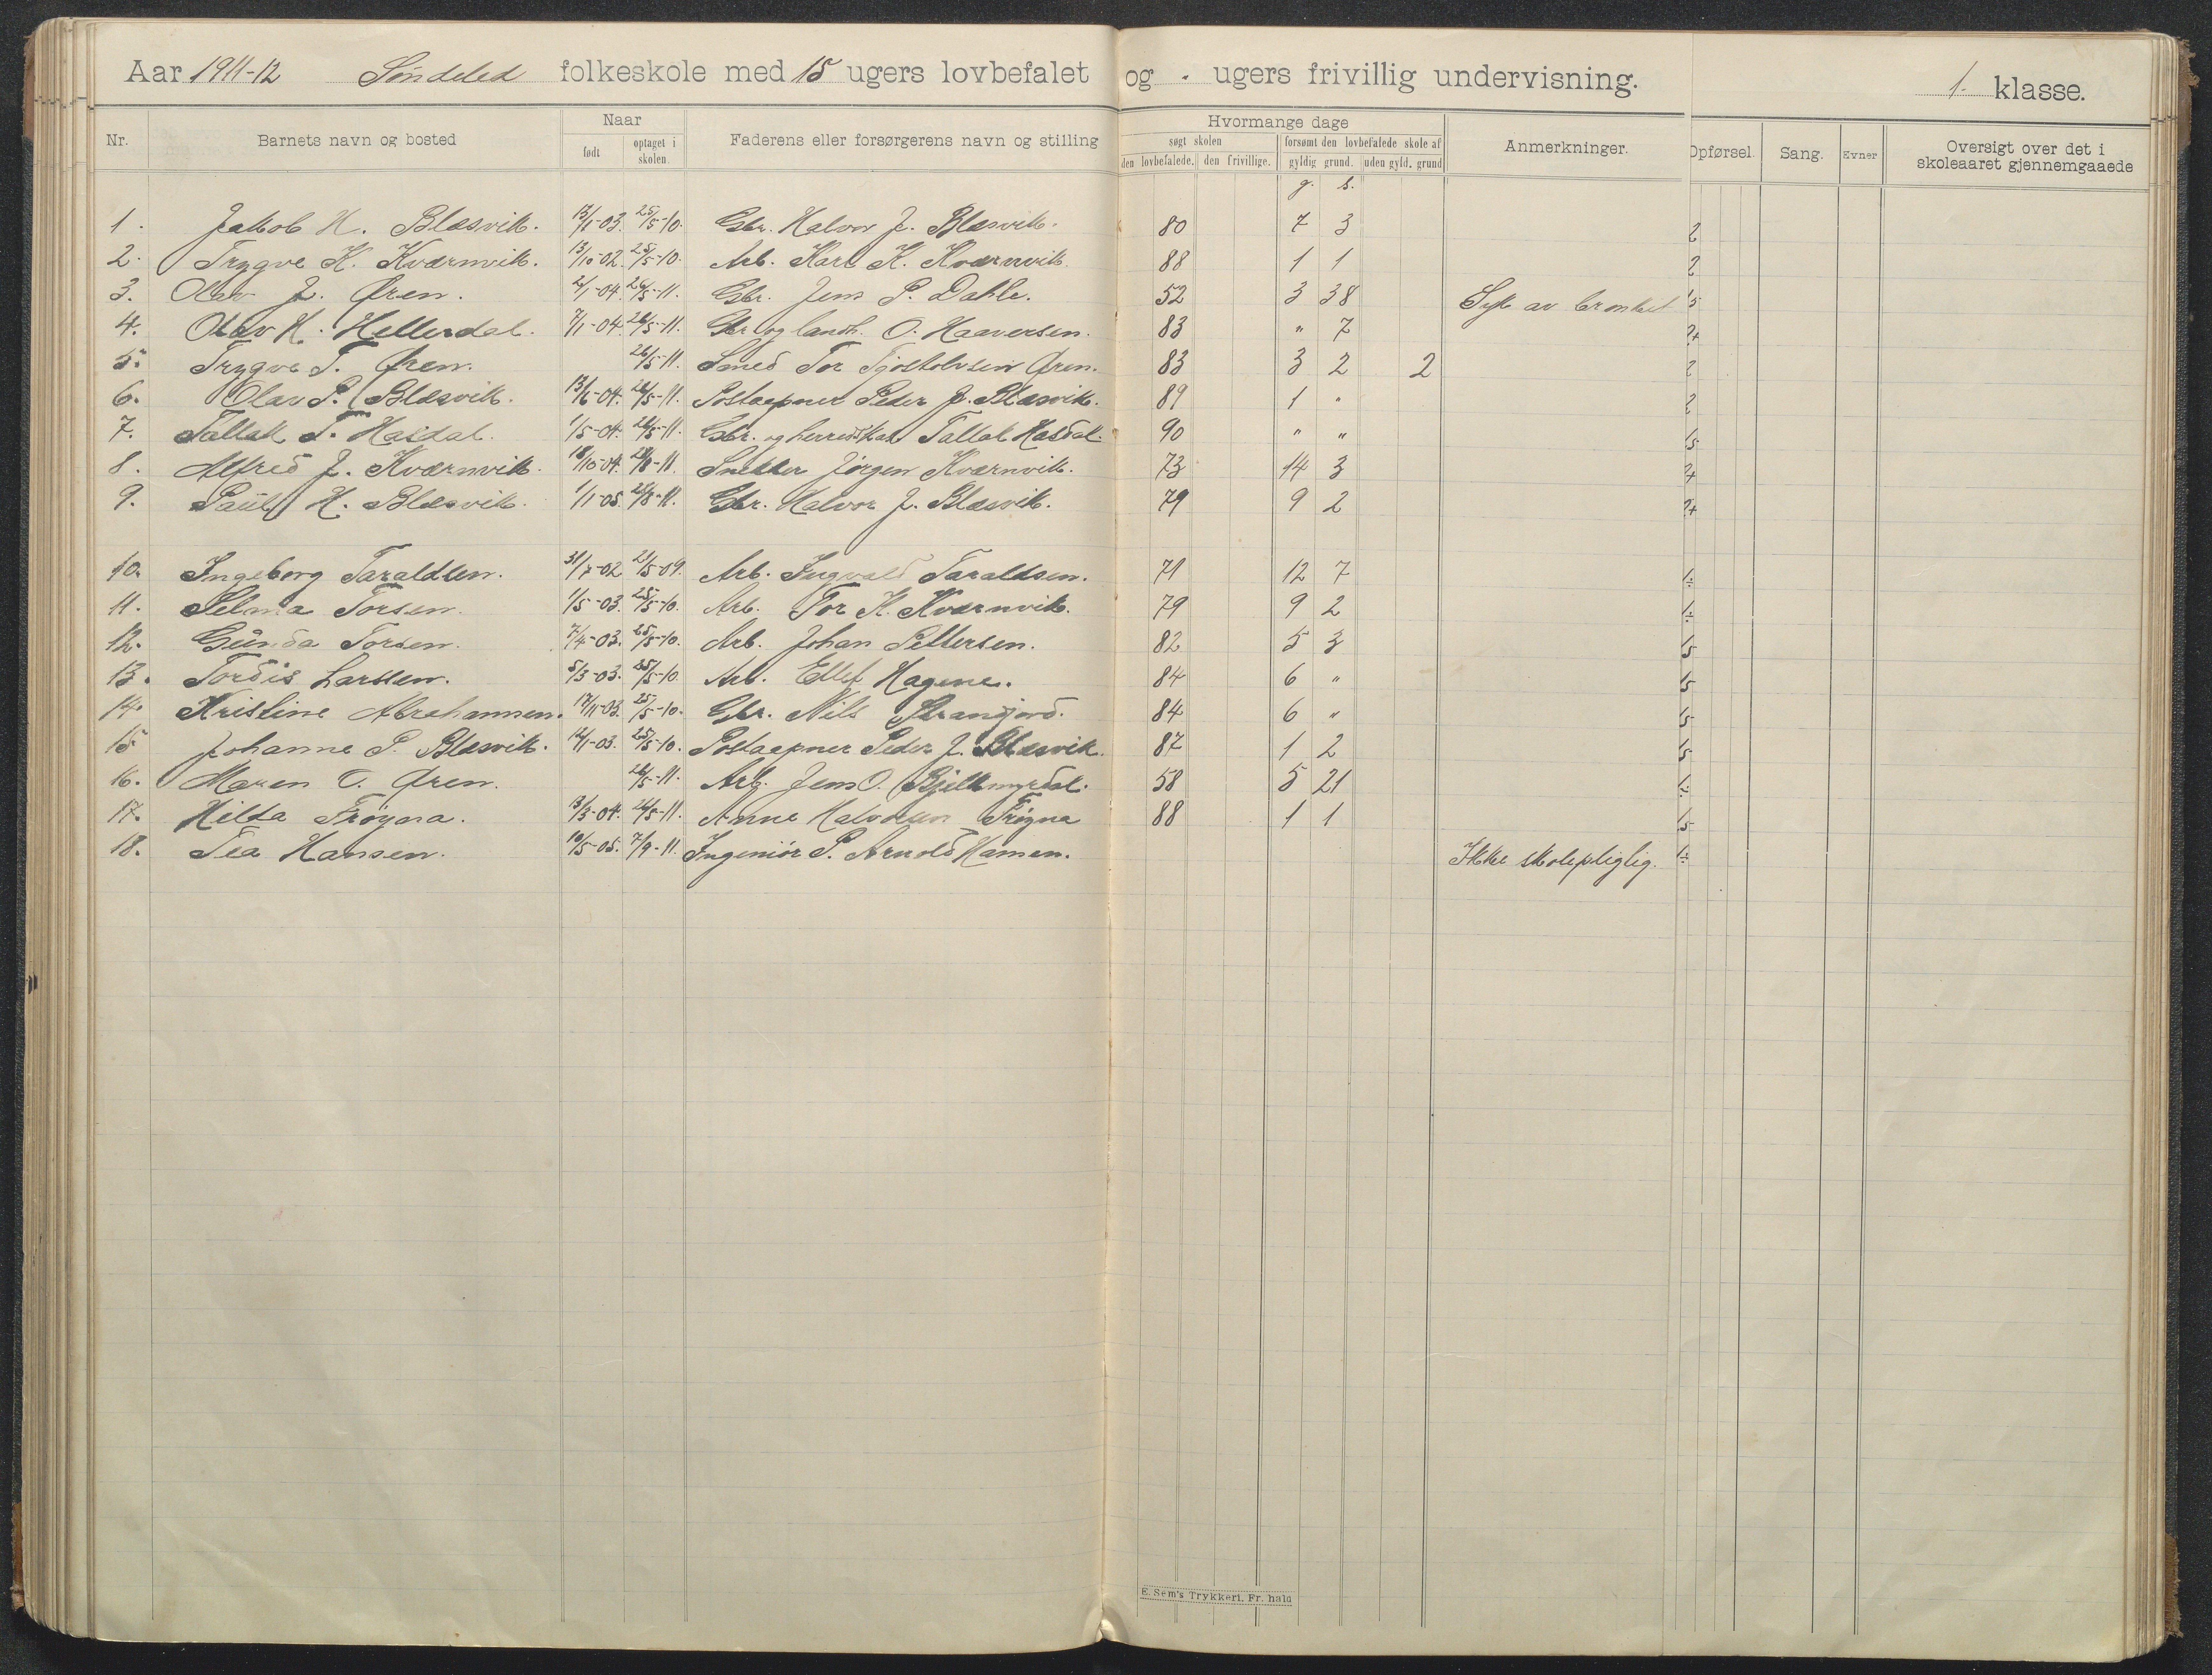 Aar 1911-12 Söndeled folkeskole med 15 ugers lovbefalet og - ugers frivillig undervisning. 1. klasse.
Nr. Barnets navn og bosted Naar født optaget i skolen. Faderens eller forsørgerens navn og stilling Hvormange dage søgt skolen den lovbefalede. den frivillige. forsømt den lovbefalede skole af gyldig grund. uden gyld. grund Anmerkninger. Opførsel. Sang. Evner Oversigt over det i skoleaaret gjennemgaaede
g. s.
1. Jakob H. Blæsvik. 13/1-03. 25/5-10. Gbr. Halvor J. Blæsvik. 80 7 3 2
2. Trygve K. Kværnvik. 13/10-02. 25/5-10. Arb. Karl K. Kværnvik. 88 1 1 2
3. Olav J. Øren. 2/1-04. 26/5-11. Gbr. Jens P. Dahle. 52 3 38 Syk av bronkit 1,5
4. Olav H. Hellerdal. 7/1-04. 26/5-11. Gbr og landh. O. Haaversen. 83 " 7 2+
5. Trygve T. Øren. 26/5-11. Smed Tor Tjostolvsen Øren. 83 3 2 2 2
6. Olav P. Blæsvik. 13/6-04. 26/5-11. Postaapner Peder J. Blæsvik. 89 1 " 2
7. Tallak T. Hasdal. 1/5-04. 26/5-11. Gbr. og herredskas Tallak Hasdal. 90 " " 1,5
8. Alfred J. Kværnvik. 18/10-04. 28/8-11. Snekker Jörgen Kværnvik. 73 14 3 2+
9. Paul H. Blæsvik. 1/1-05. 28/8-11. Gbr. Halvor J. Blæsvik. 79 9 2 2+
10. Ingeborg Taraldsen. 31/7-02 21/5-09. Arb. Ingvald Taraldsen. 71 12 7 1÷
11. Selma Torsen. 1/5-03. 25/5-10. Arb. Tor K. Kværnvik. 79 9 2 1÷
12. Gunda Torsen. 7/4-03. 25/5-10. Arb. Johan Pettersen. 82 5 3 1,5
13. Tordis Larssen. 5/3-03. 25/5-10. Arb. Ellef Hagene. 84 6 " 1,5
14. Kristine Abrahamsen. 17/11-03. 25/5-10. Gbr. Nils Strandjord. 84 6 " 1,5
15 Johanne P. Blæsvik. 12/1-03. 25/5-10. Postaapner Peder J. Blæsvik. 87 1 2 1,5
16. Maren O. Øren. 26/5-11. Arb. Jens O. Bjelkmyrdal. 58 5 21 1÷
17. Hilda Tröyna. 13/3-04. 26/5-11. Anne Halvorsen Tröyna 88 1 1 1,5
18. Tea Hansen. 10/5-05. 7/9-11. Ingeniör P. Arnold Hansen. Ikke skolepligtig. 1÷
E. Sem's Trykkeri, Fr. hald